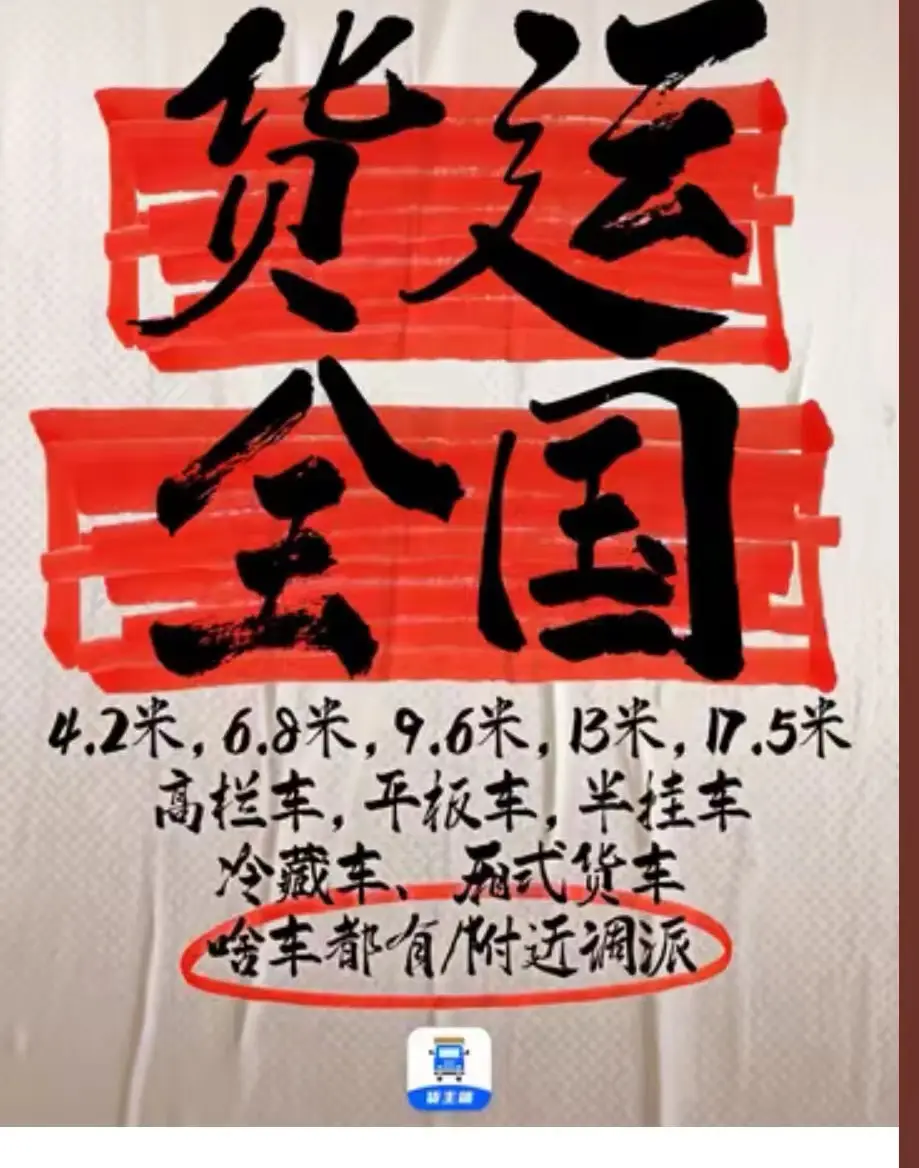 货运
全国
4.2米,6.8米,9.6米,13米,17.5米
高栏车,平板车,半挂车
冷藏车、厢式货车
啥车都有/附近调派
货主端